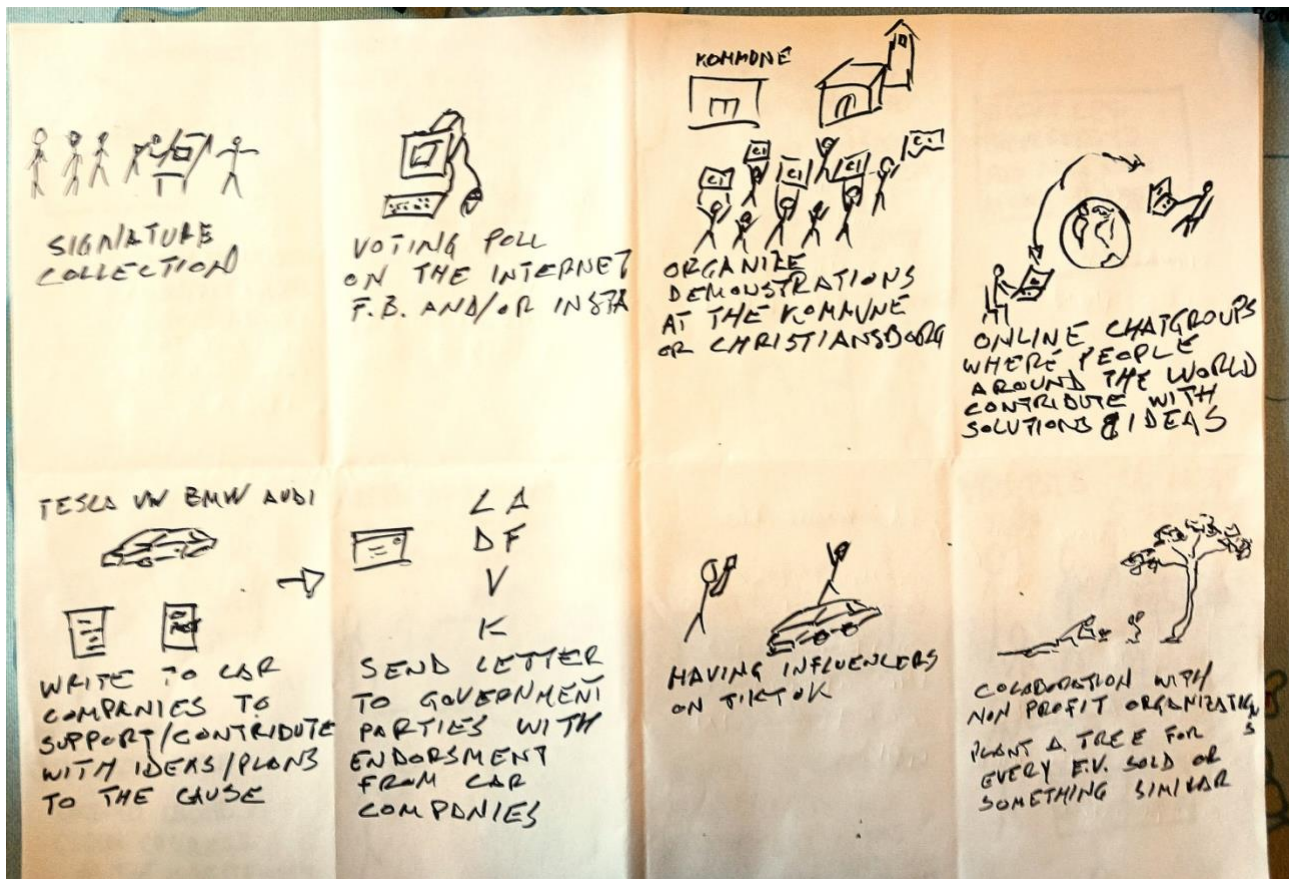 SIGNATURE
COLLECTION
VOTING POLL
ON THE INTERNET
F.B. AND/OR INSTA
KOMMUNE
ORGANIZE
DEMONSTRATIONS
AT THE KOMMUNE
OR CHRISTIANSBORG
ONLINE CHATGROUPS
WHERE PEOPLE
AROUND THE WORLD
CONTRIBUTE WITH
SOLUTIONS & IDEAS
TESLA VW BMW AUDI
WRITE TO CAR
COMPANIES TO
SUPPORT/CONTRIBUTE
WITH IDEAS/PLANS
TO THE CAUSE
L A
D F
V
K
SEND LETTER
TO GOVERNMENT
PARTIES WITH
ENDORSMENT
FROM CAR
COMPANIES
HAVING INFLUENCERS
ON TIKTOK
COLABORATION WITH
NON PROFIT ORGANIZATIONS
PLANT A TREE FOR
EVERY E.V. SOLD OR
SOMETHING SIMILAR